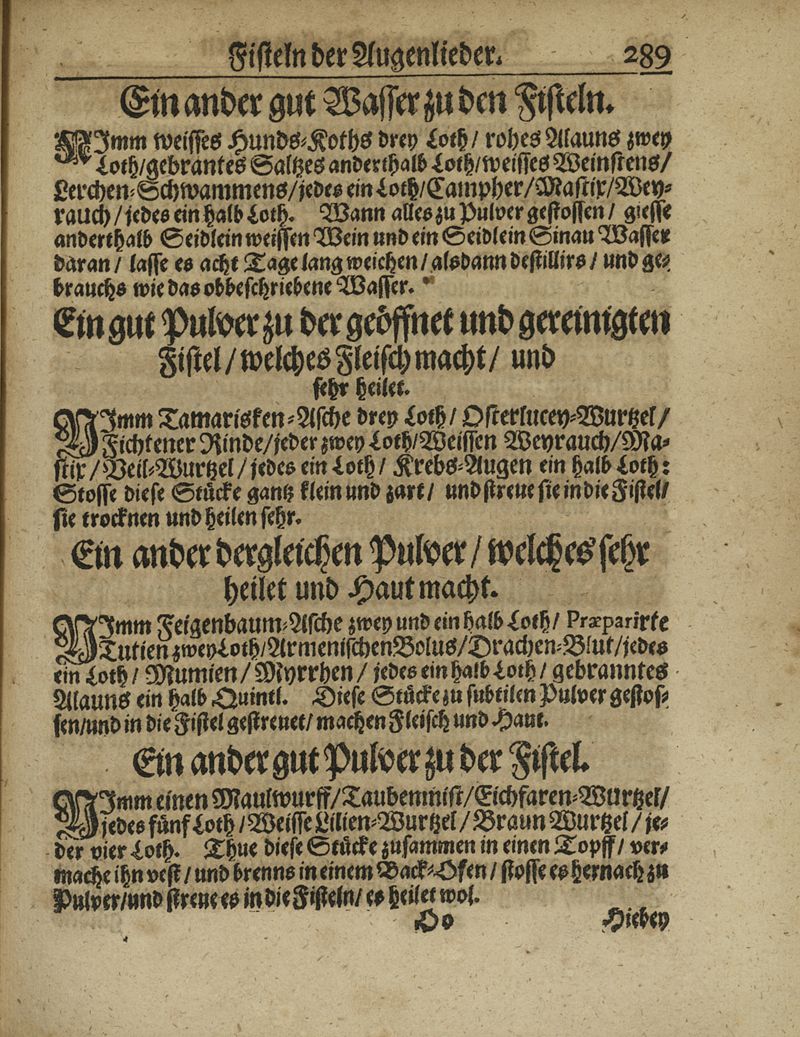 Fisteln der Augenlieder. 289
Ein ander gut Wasser zu den Fisteln.
NImm weisses Hunds-Koths drey Loth/ rohes Alauns zwey
Loth/gebrantes Saltzes anderthalb Loth/weisses Weinstens/
Lerchen-Schwammens/jedes ein Loth/Campher/Mastix/Wey-
rauch/jedes ein halb Loth. Wann alles zu Pulver gestossen/ giesse
anderthalb Seidlein weissen Wein und ein Seidlein Sinau Wasser
daran/ lasse es acht Tage lang weichen/alsdann destillirs/ und ge-
brauchs wie das obbeschriebene Wasser.
Ein gut Pulver zu der geöffnet und gereinigten
Fistel/welches Fleisch macht/ und
sehr heilet.
NImm Tamarisken-Asche drey Loth/ Osterlucey-Wurtzel/
Fichtener Rinde/jeder zwey Loth/Weissen Weyrauch/Ma-
stix/Veil-Wurtzel/jedes ein Loth/ Krebs-Augen ein halb Loth:
Stosse diese Stücke gantz klein und zart/ und streue sie in die Fistel/
sie trocknen und heilen sehr.
Ein ander dergleichen Pulver/welches sehr
heilet und Haut macht.
NImm Feigenbaum-Asche zwey und ein halb Loth/ Præparirte
Tutien zwey Loth/Armenischen Bolus/Drachen-Blut/jedes
ein Loth/ Mumien/Myrrhen/ jedes ein halb Loth/ gebranntes
Alauns ein halb Quintl. Diese Stücke zu subtilen Pulver gestos-
sen/und in die Fistel gestreuet/machen Fleisch und Haut.
Ein ander gut Pulver zu der Fistel.
NImm einen Maulwurff/Taubenmist/Eichfaren-Wurtzel/
jedes fünf Loth/Weisse Lilien-Wurtzel/Braun Wurtzel/je-
der vier Loth. Thue diese Stücke zusammen in einen Topff/ ver-
mache ihn vest/ und brenns in einem Back-Ofen/ stosse es hernach zu
Pulver/und streue es in die Fisteln/ es heilet wol.
Oo Hiebey